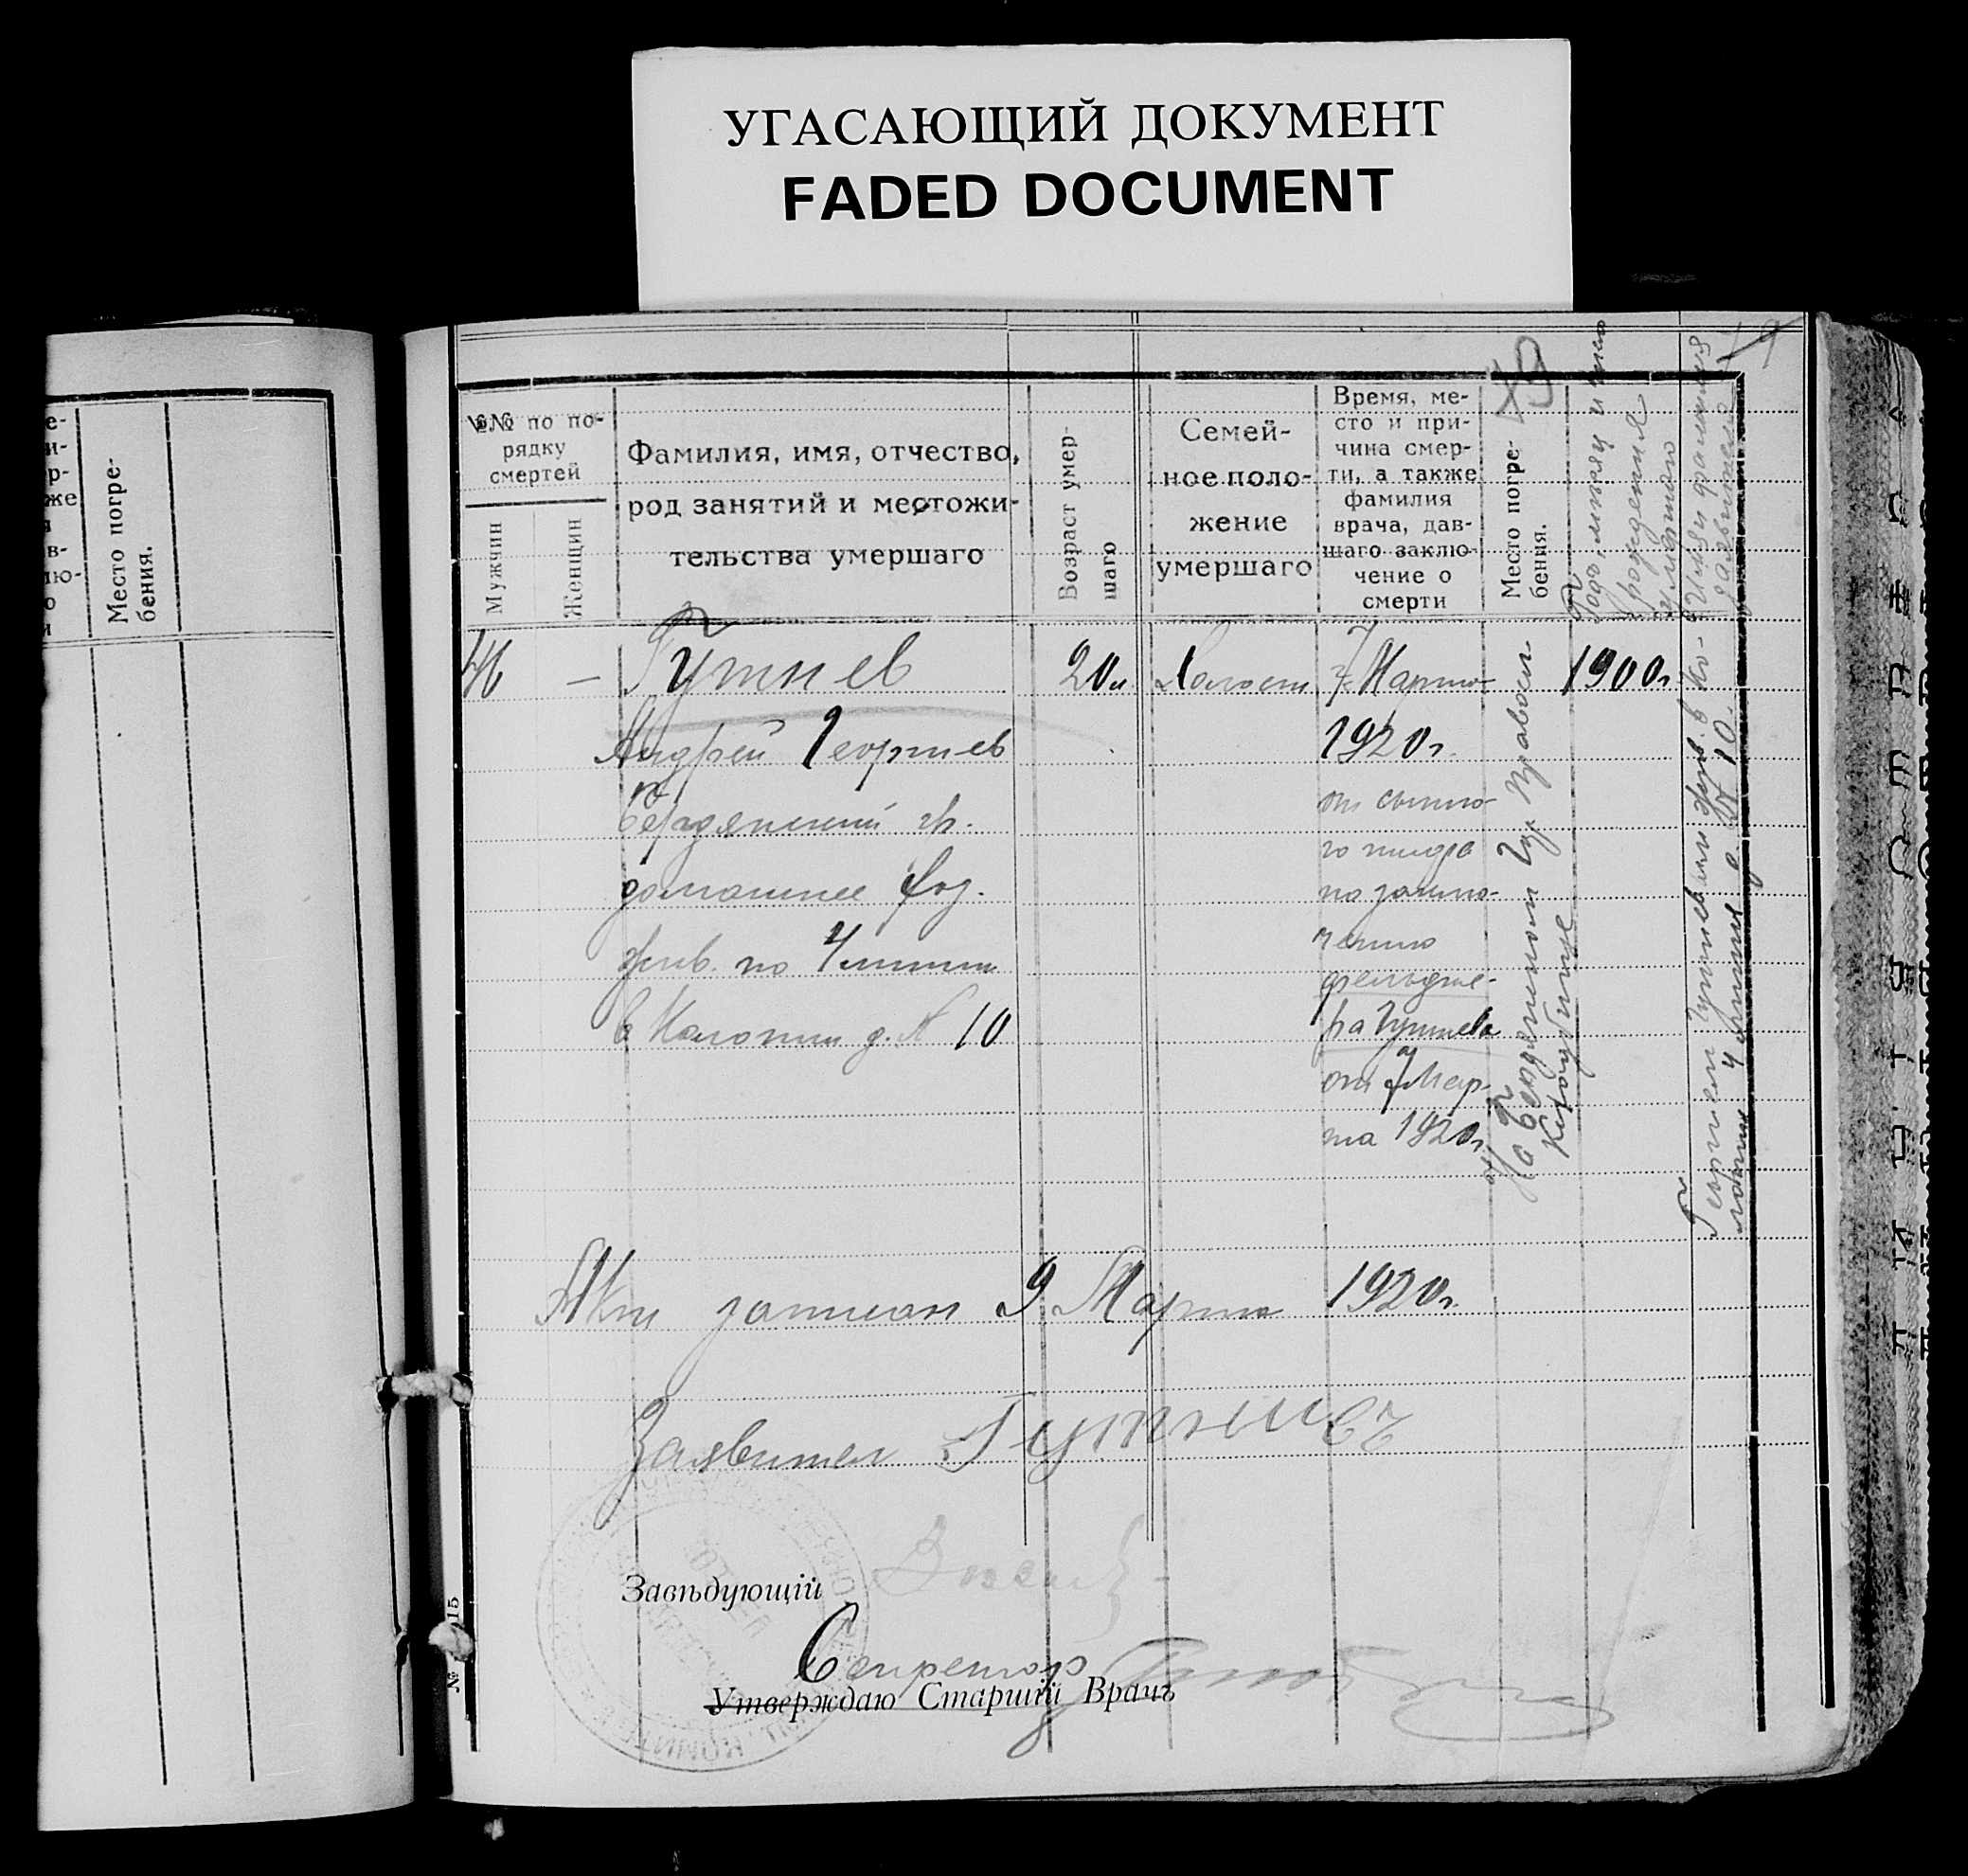 УГАСАЮЩИЙ ДОКУМЕНТ
FADED DOCUMENT
Место погре-
бения.
№№ по по-
рядку
смертей
Мужчин
Женщин
Фамилия, имя, отчество,
род занятий и местожи-
тельства умершаго
Возраст умер-
шаго
Семей-
ное поло-
жение
умершаго
Время, ме-
сто и при-
чина смер-
ти, а также
фамилия
врача, дав-
шаго заклю-
чение о
смерти
Место погре-
бения.
Год, месяц и
рождения
умершаго
Имя и фамилия
заявителя
46 —
Гутиев
Андрей Георгиев
гр.
домашнее
жив. по 4 линии
в Колонии д. № 10
20л.
Холост
7 Марта
1920г.
от сыпно-
го тифа
по заклю-
чению
фельдше-
ра Гутиева
от 7 Мар-
та 1920г.
Православн.
Кладбище
1900г.
Георгий Гутиев жив. в Ко-
лонии 4 линия д. № 10.
Акт записан 9 Марта 1920г.
Заявител Гутиев
Завѣдующій
Секретарь
Утверждаю Старшій Врачъ